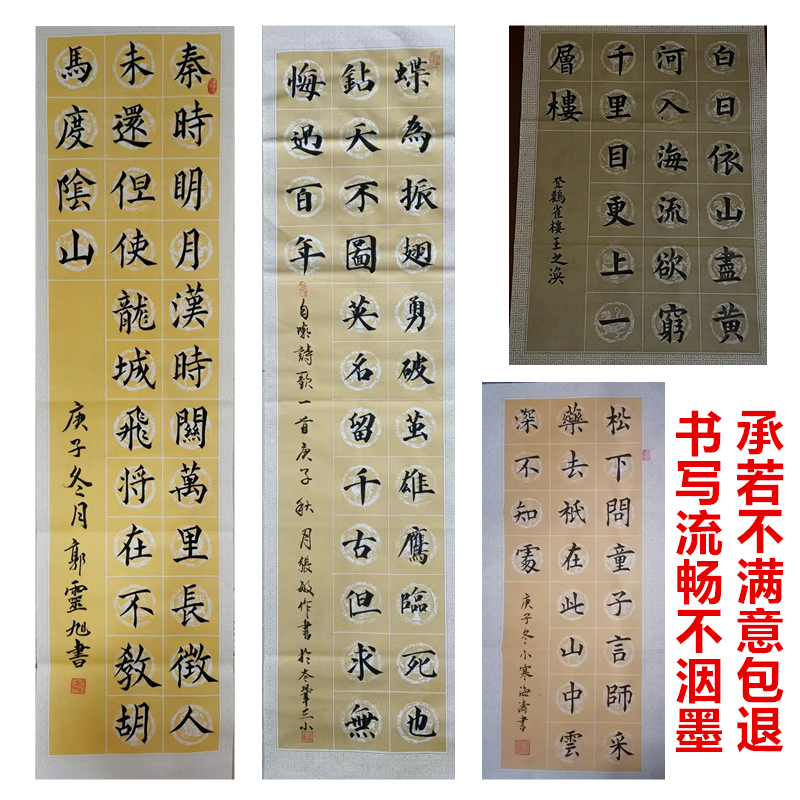 秦時明月漢時關萬里長徵人
未還但使龍城飛将在不教胡
馬度陰山
庚子冬月郭靈旭書
蝶為振翅勇破茧雄鷹臨死也
鉆天不圖英名留千古但求無
悔過百年
自嘆詩歌一首庚子秋月張敏作書於岑鞏三小
白日依山盡黄
河入海流欲窮
千里目更上一
層樓
登鸛雀樓王之渙
松下問童子言師采
藥去祇在此山中雲
深不知處
庚子冬小寒海濤書
承若不满意包退
书写流畅不洇墨